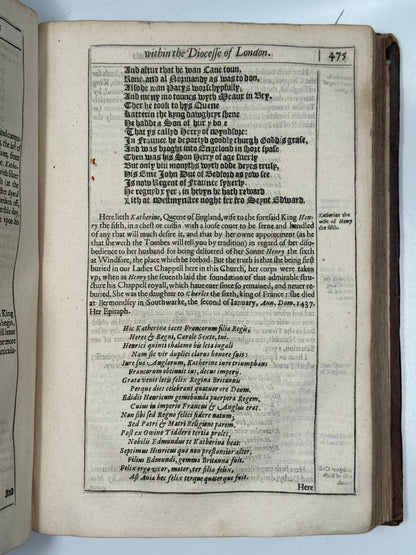 within the Diocesse of London.
475
And aftur that he wan Cane toun,
Rone, and al Normandy as was to don,
Also he wan Parys worschypfully,
And meny mo tounes wyth Meaux in Bry.
Ther he took to hys Quene
Katterin the kyng dawghtyr shene
He hadde a Son of hur y bo e
That ys callyd Herry of wyndsore:
In Fraunce he departyd goodly thurgh Goddis grase,
And was broght into Engelond in short spase
Then was his Son Herry of age sikerly
But only viii months wyth odde deyes truly,
His Eme John Duc of Bedford as yow see
Is now Regent of Fraunce sykerly.
He regnyd x yer, in hevyn he hath reward
Lith at Westminstre noght fer fro Seynt Edward.
Here lieth Katherine, Queene of England, wife to the foresaid King Hen-
ry the fifth, in a chest or coffin with a loose cover to be seene and handled
of any that will much desire it, and that by her owne appointment (as he
that sheweth the Tombes will tell you by tradition) in regard of her diso-
bedience to her husband for being delivered of her Sonne Henry the sixt
at Windsore, the place which he forbad. But the truth is that she being first
buried in our Ladies Chappell here in this Church, her corps were taken
up; when as Henry the seventh laid the foundation of that admirable struc-
ture his Chappell royall, which have ever since so remained, and never re-
buried. She was the daughter to Charles the sixth, king of France; she died at
Bermondsey in Southwarke, the second of January, Ann. Dom. 1437.
Her Epitaph.
Katherine the
wife of Henry
the fifth.
Hic Katherina iacet Francorum filia Regis,
Heres & Regni, Carole Sexte, tui.
Henrici quinti thalamo bis leta iugali
Nam sic vir duplici clarus honore fuit:
Iure suo Anglorum, Katherine iure triumphans
Francorum obtinuit ius, decus imperij.
Grata venit letis felix Regina Britannis
Perque dies celebrant quatuor ore Deum.
Edidit Henricum gemebunda puerpera Regem,
Cuius in imperio Francus & Anglus erat.
Non sibi sed Regno felici sidere natum;
Sed Patri & Matri Religione parem.
Post ex Owino Tiddero tertia proles,
Nobilis Edmundus te Katherina beat:
Septimus Henricus quo non prestantior alter,
Filius Edmundi, gemma Britanna fuit.
Felix ergo uxor, mater, ter filia felix,
Ast Avia hec felix terque quaterque fuit.
Here